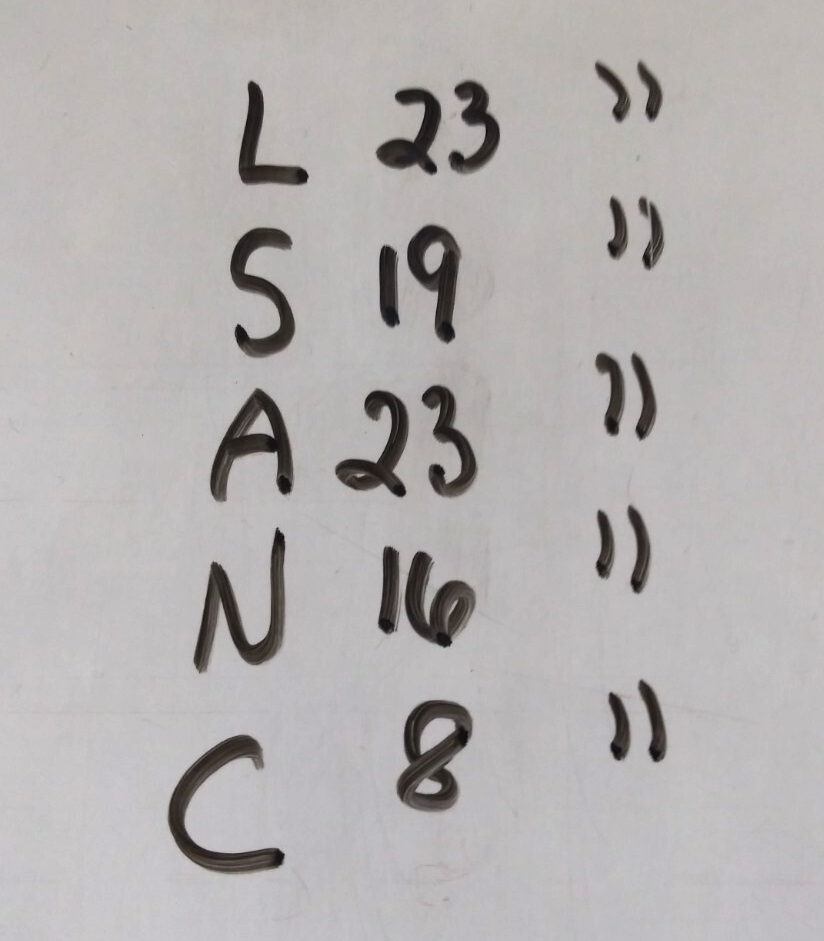 L 23 "
S 19 "
A 23 "
N 16 "
C 8 "